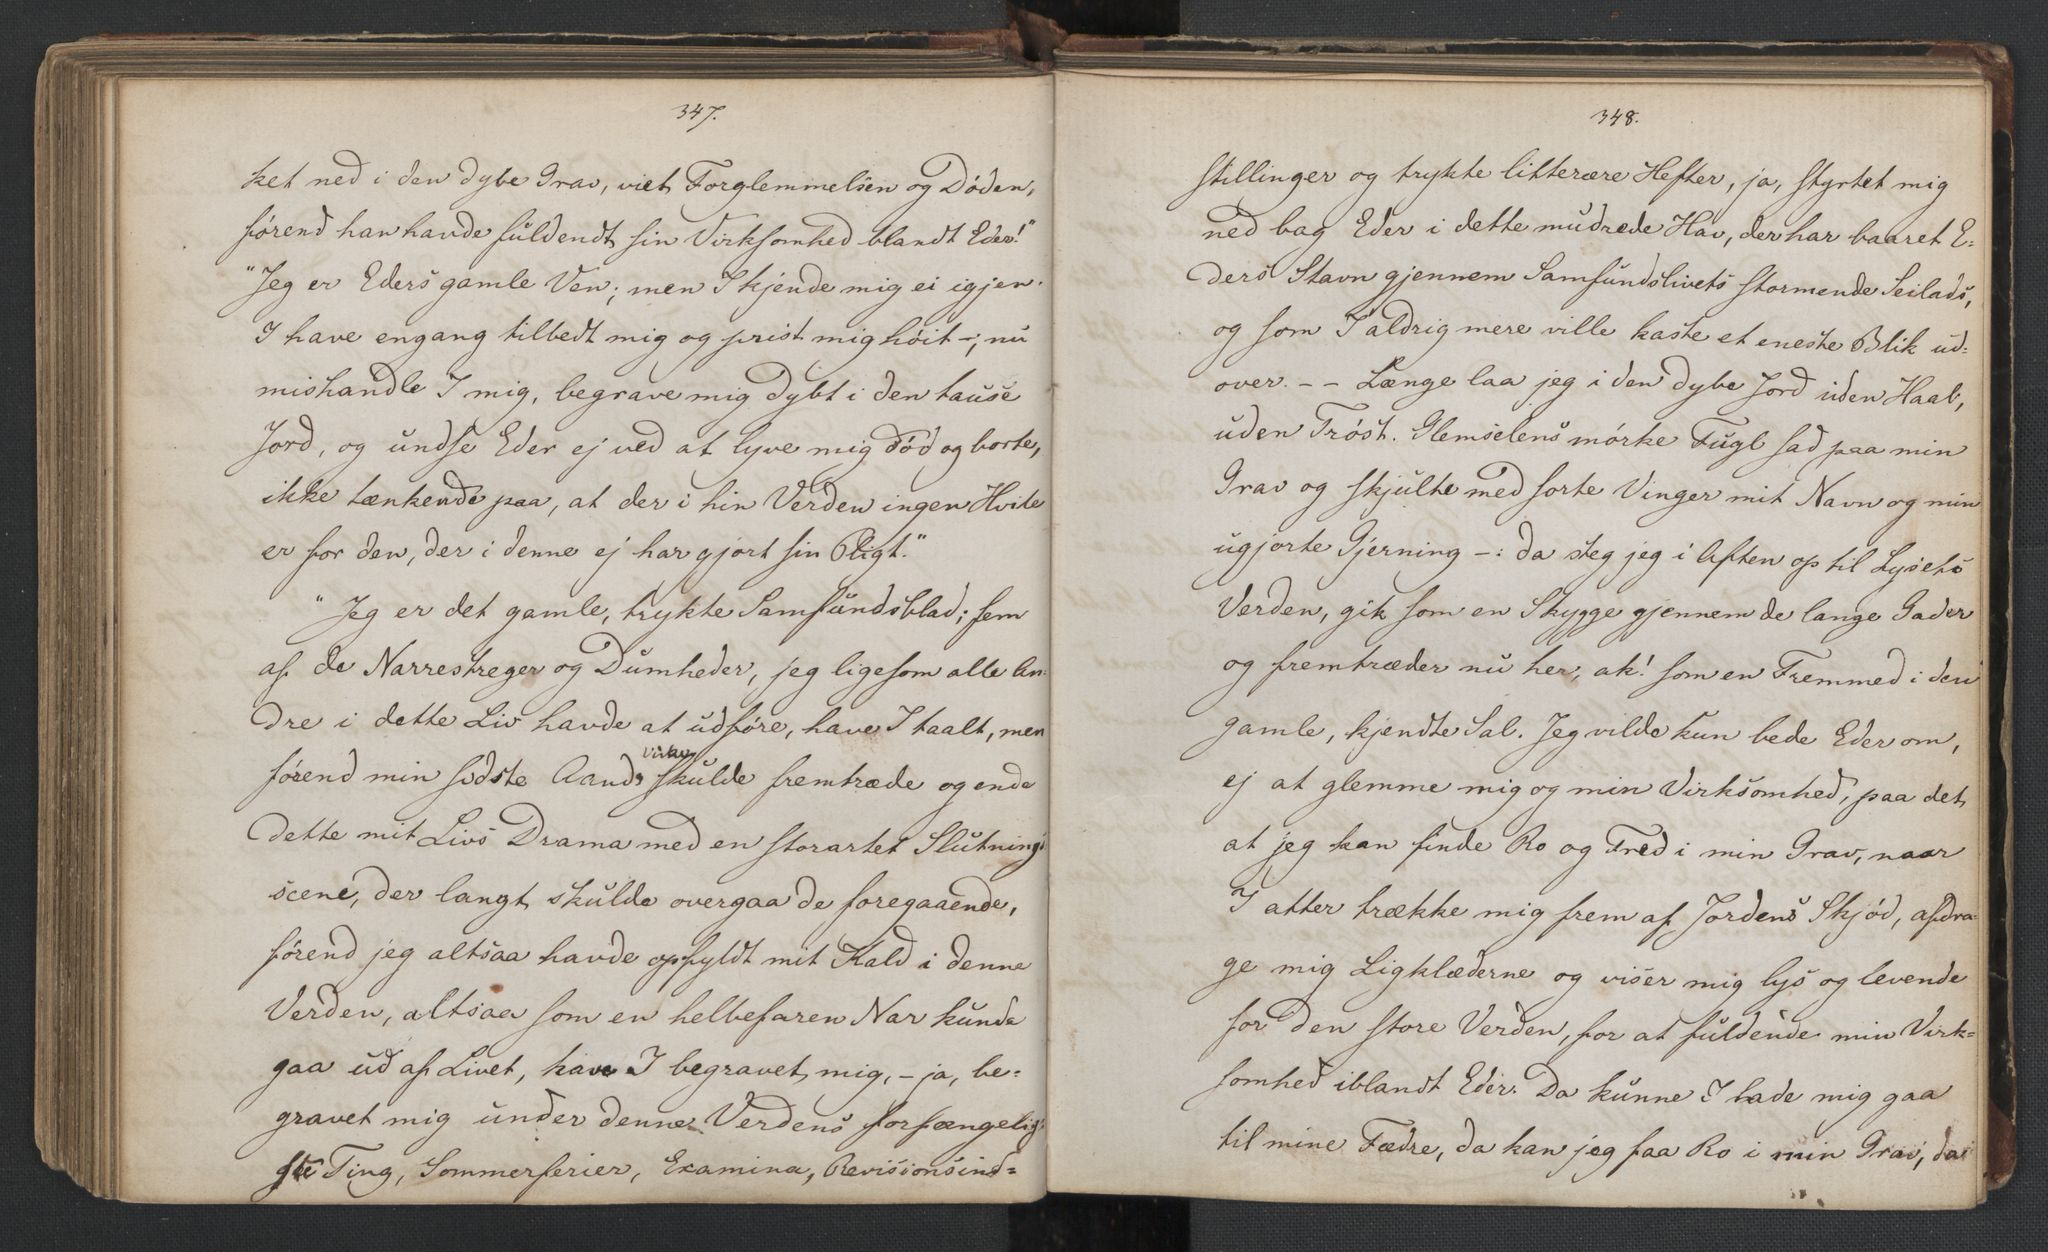 347.
ket ned i den dybe Grav, viet Forglemmelsen og Döden,
förend han havde fuldendt sin Virksomhed blandt Eder!"
"Jeg er Eders gamle Ven; men I kjende mig ei igjen.
I have engang tilbedt mig og prist mig höit –; nu
mishandle I mig, begrave mig dybt i den tause
Jord, og undse Eder ej ved at lyve mig död og borte,
ikke tænkende paa, at der i hin Verden ingen Hvile
er for den, der i denne ej har gjort sin Pligt."
"Jeg er det gamle, trykte Samfundsblad; fem
af de Narrestreger og Dumheder, jeg ligesom alle An-
dre i dette Liv havde at udföre, have I taalt, men
förend min sidste Aands virken skulde fremtræde og ende
dette mit Livs Drama med en storartet Slutnings
scene, der langt skulde overgaa de foregaaende,
förend jeg altsaa havde opfyldt mit Kald i denne
Verden, altsaa som en helbefaren Nar kunde
gaa ud af Livet, have I begravet mig, – ja, be-
gravet mig under denne Verdens forfængelig-
ste Ting, Sommerferier, Examina, Revisionsind=
348.
stillinger og trykte litterære Hefter, ja, styrtet mig
ned bag Eder i dette mudrede Hav, der har baaret E-
ders Stavn gjennem Samfundslivets stormende Seilads,
og som I aldrig mere ville kaste et eneste Blik ud=
over. – – Længe laa jeg i den dybe Jord uden Haab,
uden Tröst. Glemselens mörke Fugl sad paa min
Grav og skjulte med sorte Vinger mit Navn og min
ugjorte Gjerning –: da steg jeg i Aften op til Lysets
Verden, gik som en Skygge gjennem de lange Gader
og fremtræder nu her, ak! som en Fremmed i den
gamle, kjendte Sal. Jeg vilde kun bede Eder om,
ej at glemme mig og min Virksomhed, paa det
at jeg kan finde Ro og Fred i min Grav, naar
I atter trække mig frem af Jordens Skjöd, afdra-
ge mig Ligklæderne og viser mig lys og levende
for den store Verden, for at fuldende min Virk=
somhed iblandt Eder. Da kunne I lade mig gaa
til mine Fædre, da kan jeg faa Ro i min Grav, da